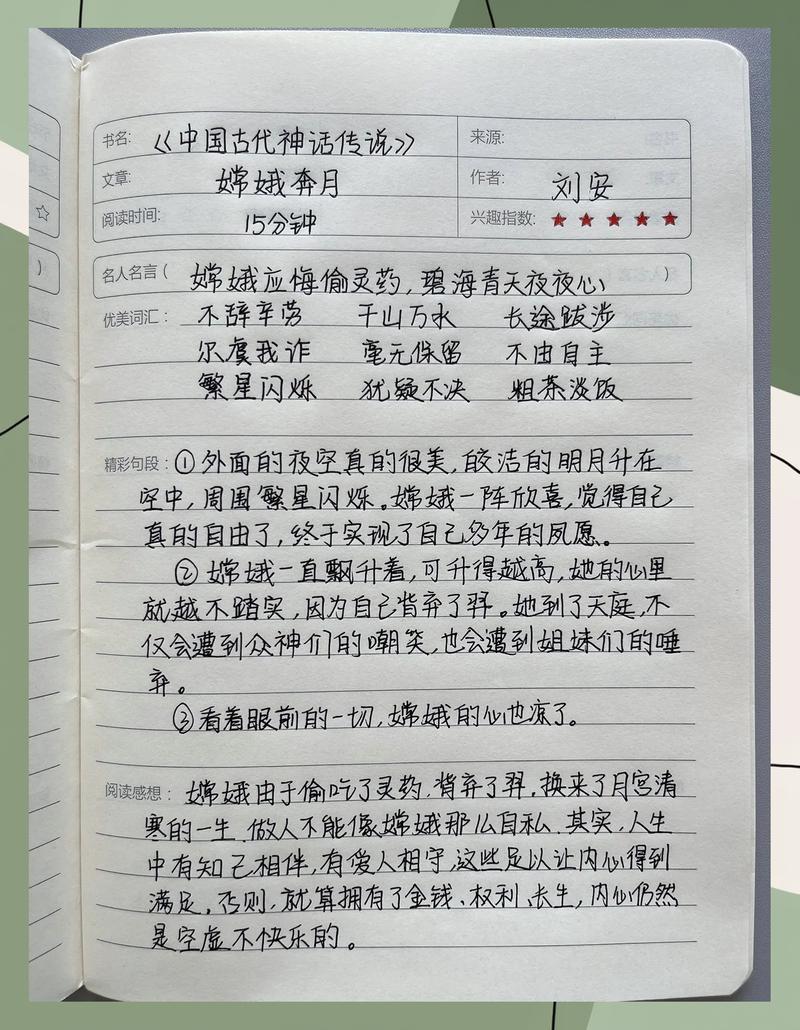 书名: 《中国古代神话传说》 来源:
文章: 嫦娥奔月 作者: 刘安
阅读时间: 15分钟 兴趣指数: ★★★★★
名人名言( 嫦娥应悔偷灵药,碧海青天夜夜心 )
优美词汇: 不辞辛劳 千山万水 长途跋涉
尔虞我诈 毫无保留 不由自主
繁星闪烁 犹疑不决 粗茶淡饭
精彩句段: ①外面的夜空真的很美,皎洁的明月升在
空中,周围繁星闪烁。嫦娥一阵欣喜,觉得自己
真的自由了,终于实现了自己多年的夙愿。
②嫦娥一直飘升着,可升得越高,她的心里
就越不踏实,因为自己背弃了羿。她到了天庭,不
仅会遭到众神们的嘲笑,也会遭到姐妹们的唾
弃。
③看着眼前的一切,嫦娥的心也凉了。
阅读感想: 嫦娥由于偷吃了灵药,背弃了羿,换来了月宫清
寒的一生,做人不能像嫦娥那么自私,其实,人生
中有知己相伴,有爱人相守,这些足以让内心得到
满足。否则,就算拥有了金钱、权利、长生,内心仍然
是空虚不快乐的。